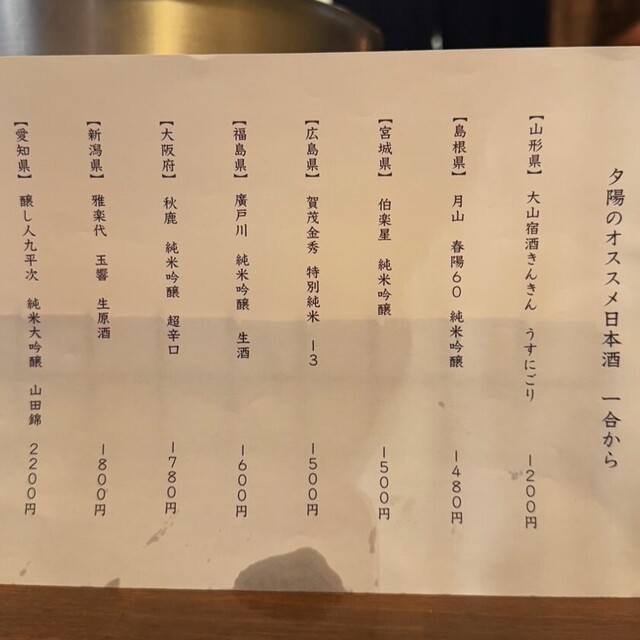 夕陽のオススメ日本酒　一合から
【山形県】　大山宿酒きんきん　うすにごり　1200円
【島根県】　月山　春陽60　純米吟醸　1480円
【宮城県】　伯楽星　純米吟醸　1500円
【広島県】　賀茂金秀　特別純米　13　1500円
【福島県】　廣戸川　純米吟醸　生酒　1600円
【大阪府】　秋鹿　純米吟醸　超辛口　1780円
【新潟県】　雅楽代　玉響　生原酒　1800円
【愛知県】　醸し人九平次　純米大吟醸　山田錦　2200円